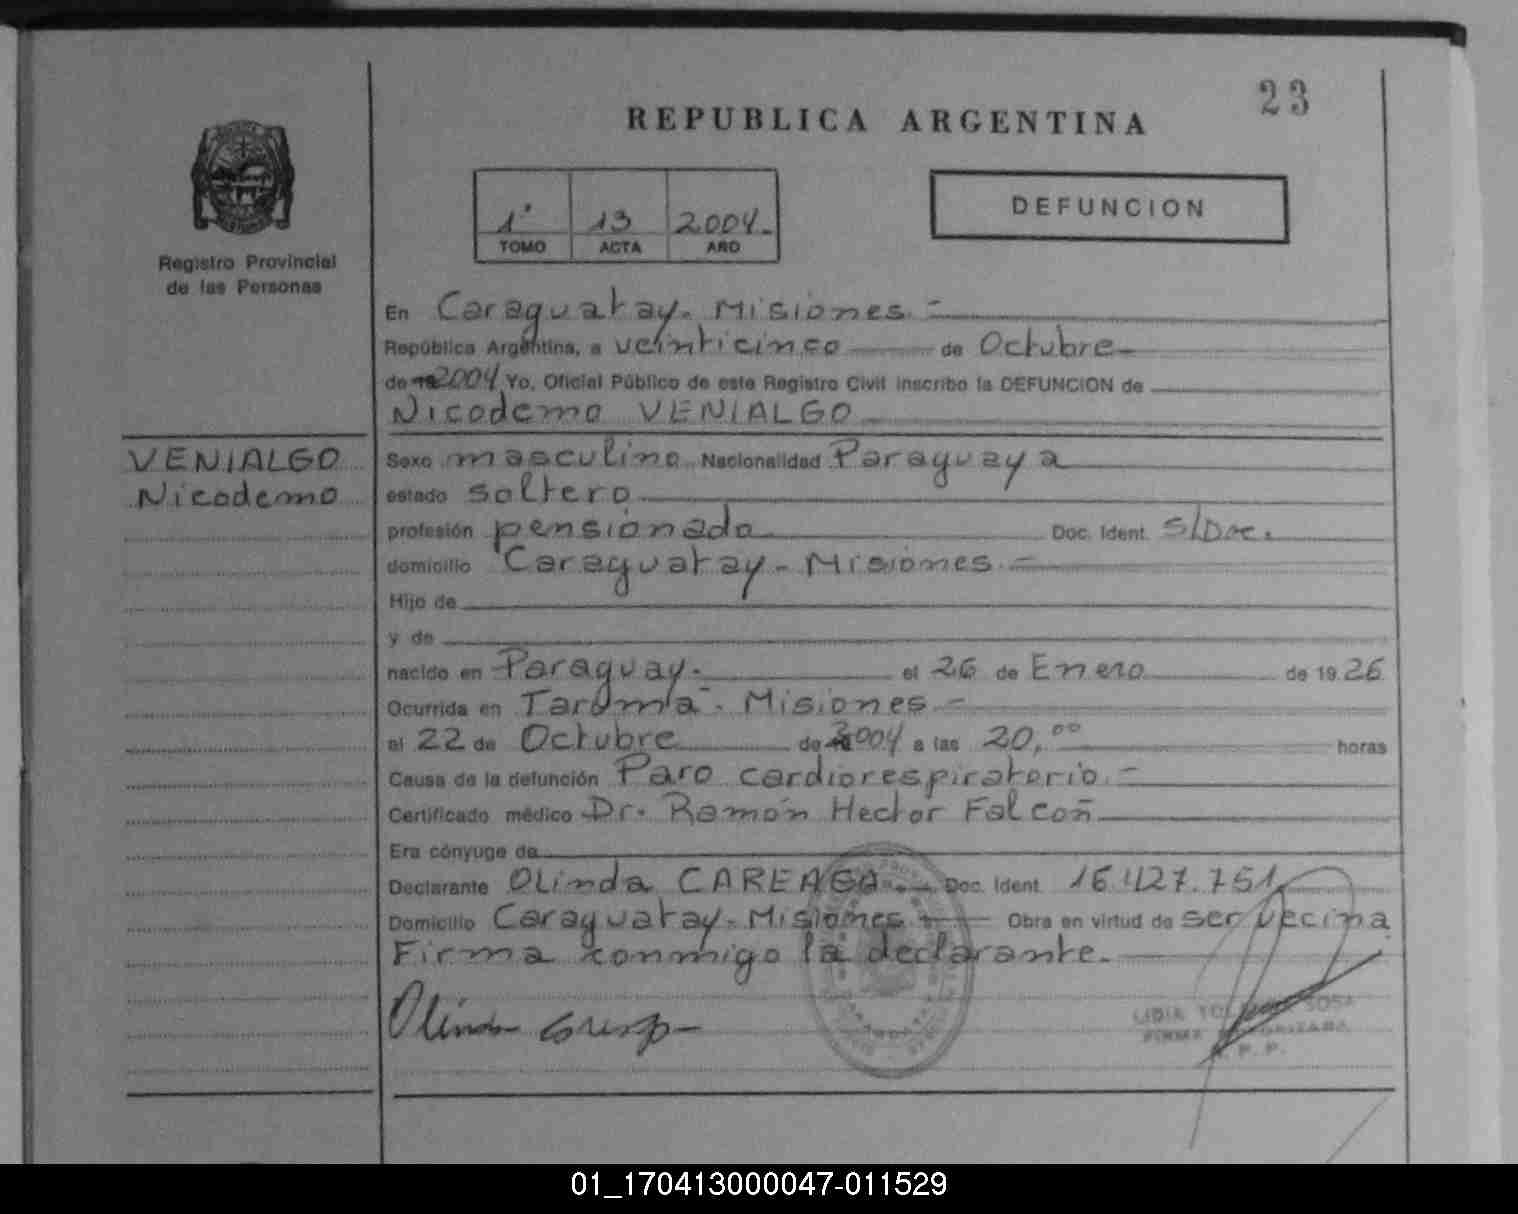 23
REPUBLICA ARGENTINA
1° 13 2004.
TOMO ACTA AÑO
DEFUNCION
Registro Provincial
de las Personas
En Caraguatay. Misiones.-
República Argentina, a veinticinco de Octubre
de 2004 Yo, Oficial Público de este Registro Civil inscribo la DEFUNCION de
Nicodemo VENIALGO
VENIALGO
Nicodemo
Sexo masculino Nacionalidad Paraguaya
estado soltero
profesión pensionado Doc. Ident. S/Doc.
domicilio Caraguatay - Misiones.-
Hijo de
y de
nacido en Paraguay. el 26 de Enero de 1926
Ocurrida en Taruma - Misiones.-
el 22 de Octubre de 2004 a las 20,00 horas
Causa de la defunción Paro cardiorespiratorio.-
Certificado médico Dr. Ramón Hector Falcoñ
Era cónyuge de
Declarante Olinda CAREAGA. Doc. Ident. 16.427.751
Domicilio Caraguatay - Misiones Obra en virtud de ser vecina
Firma conmigo la declarante.
Olinda
LIDIA SOSA
FIRMA AUTORIZADA
R. P. P.
01_170413000047-011529